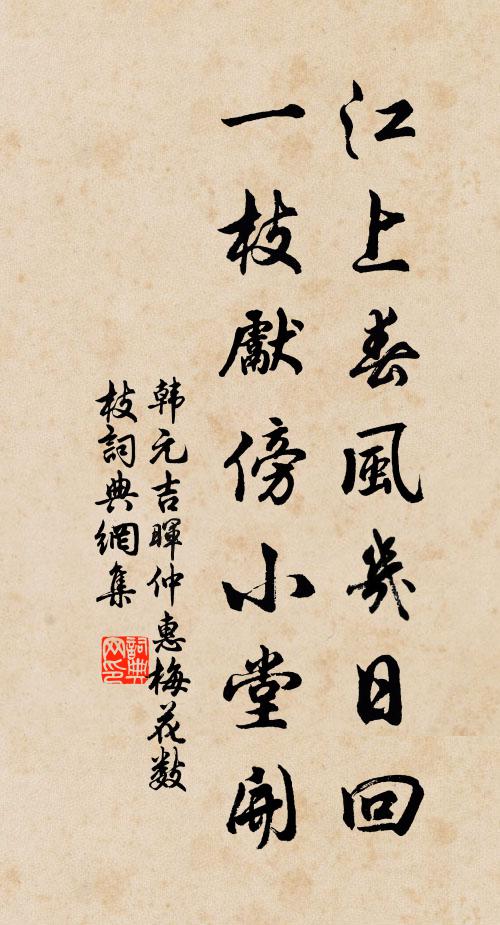 江上春風幾日回
一枝獻傍小堂開
韩元吉暉仲惠梅花数
枝詞典網集
詞典
网印